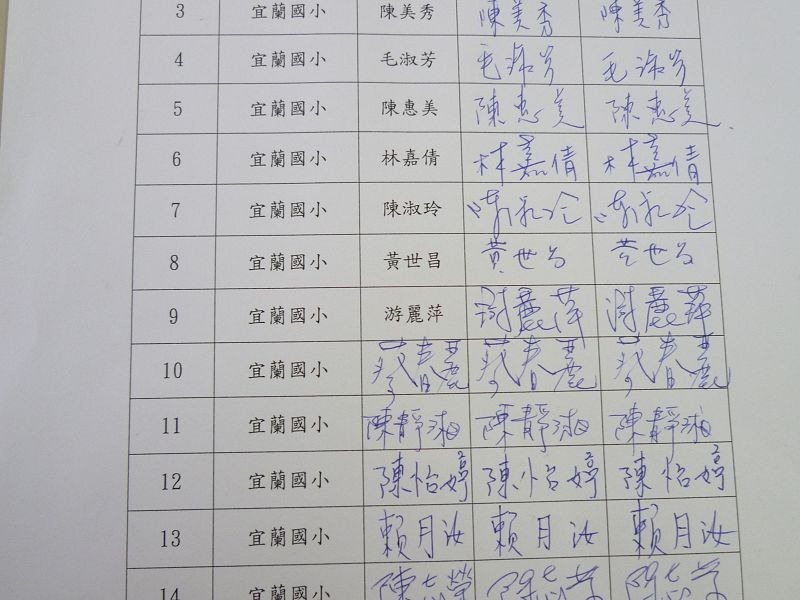 3 宜蘭國小 陳美秀 陳美秀 陳美秀
4 宜蘭國小 毛淑芳 毛淑芳 毛淑芳
5 宜蘭國小 陳惠美 陳惠美 陳惠美
6 宜蘭國小 林嘉倩 林嘉倩 林嘉倩
7 宜蘭國小 陳淑玲 陳淑玲 陳淑玲
8 宜蘭國小 黃世昌 黃世昌 黃世昌
9 宜蘭國小 游麗萍 游麗萍 游麗萍
10 宜蘭國小 蔡春麗 蔡春麗 蔡春麗
11 宜蘭國小 陳靜湘 陳靜湘 陳靜湘
12 宜蘭國小 陳怡婷 陳怡婷 陳怡婷
13 宜蘭國小 賴月汝 賴月汝 賴月汝
14 宜蘭國小